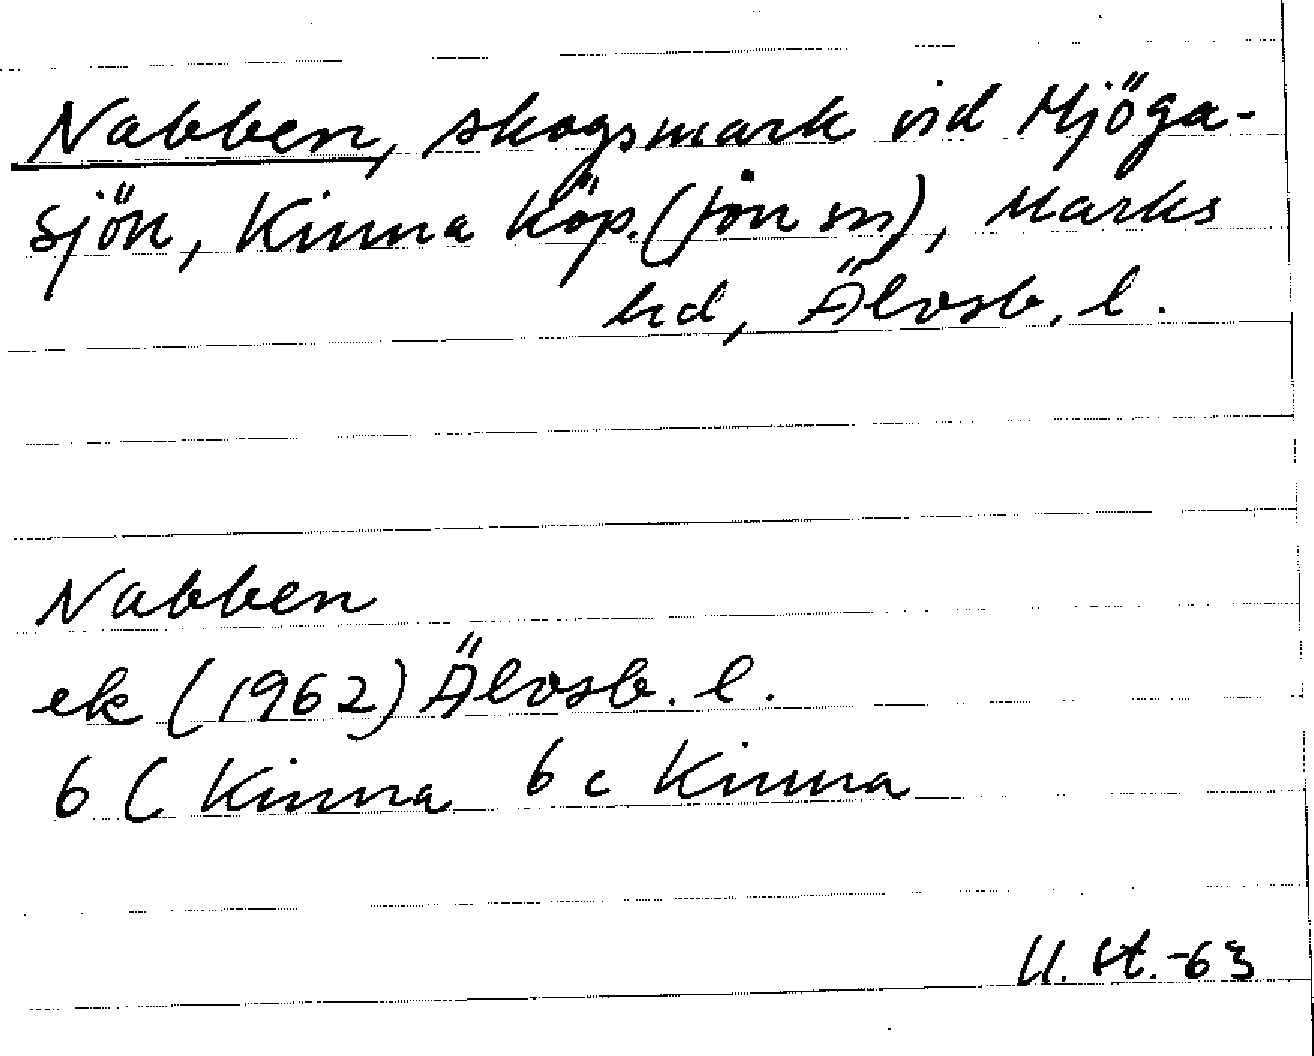 Nabben, skogsmark vid Mjöga-
sjön, Kinna köp. (från sn), Marks
hd, Älvsb. l.
Nabben
ek (1962) Älvsb. l.
6 C Kinna 6 c Kinna
U. St. -63